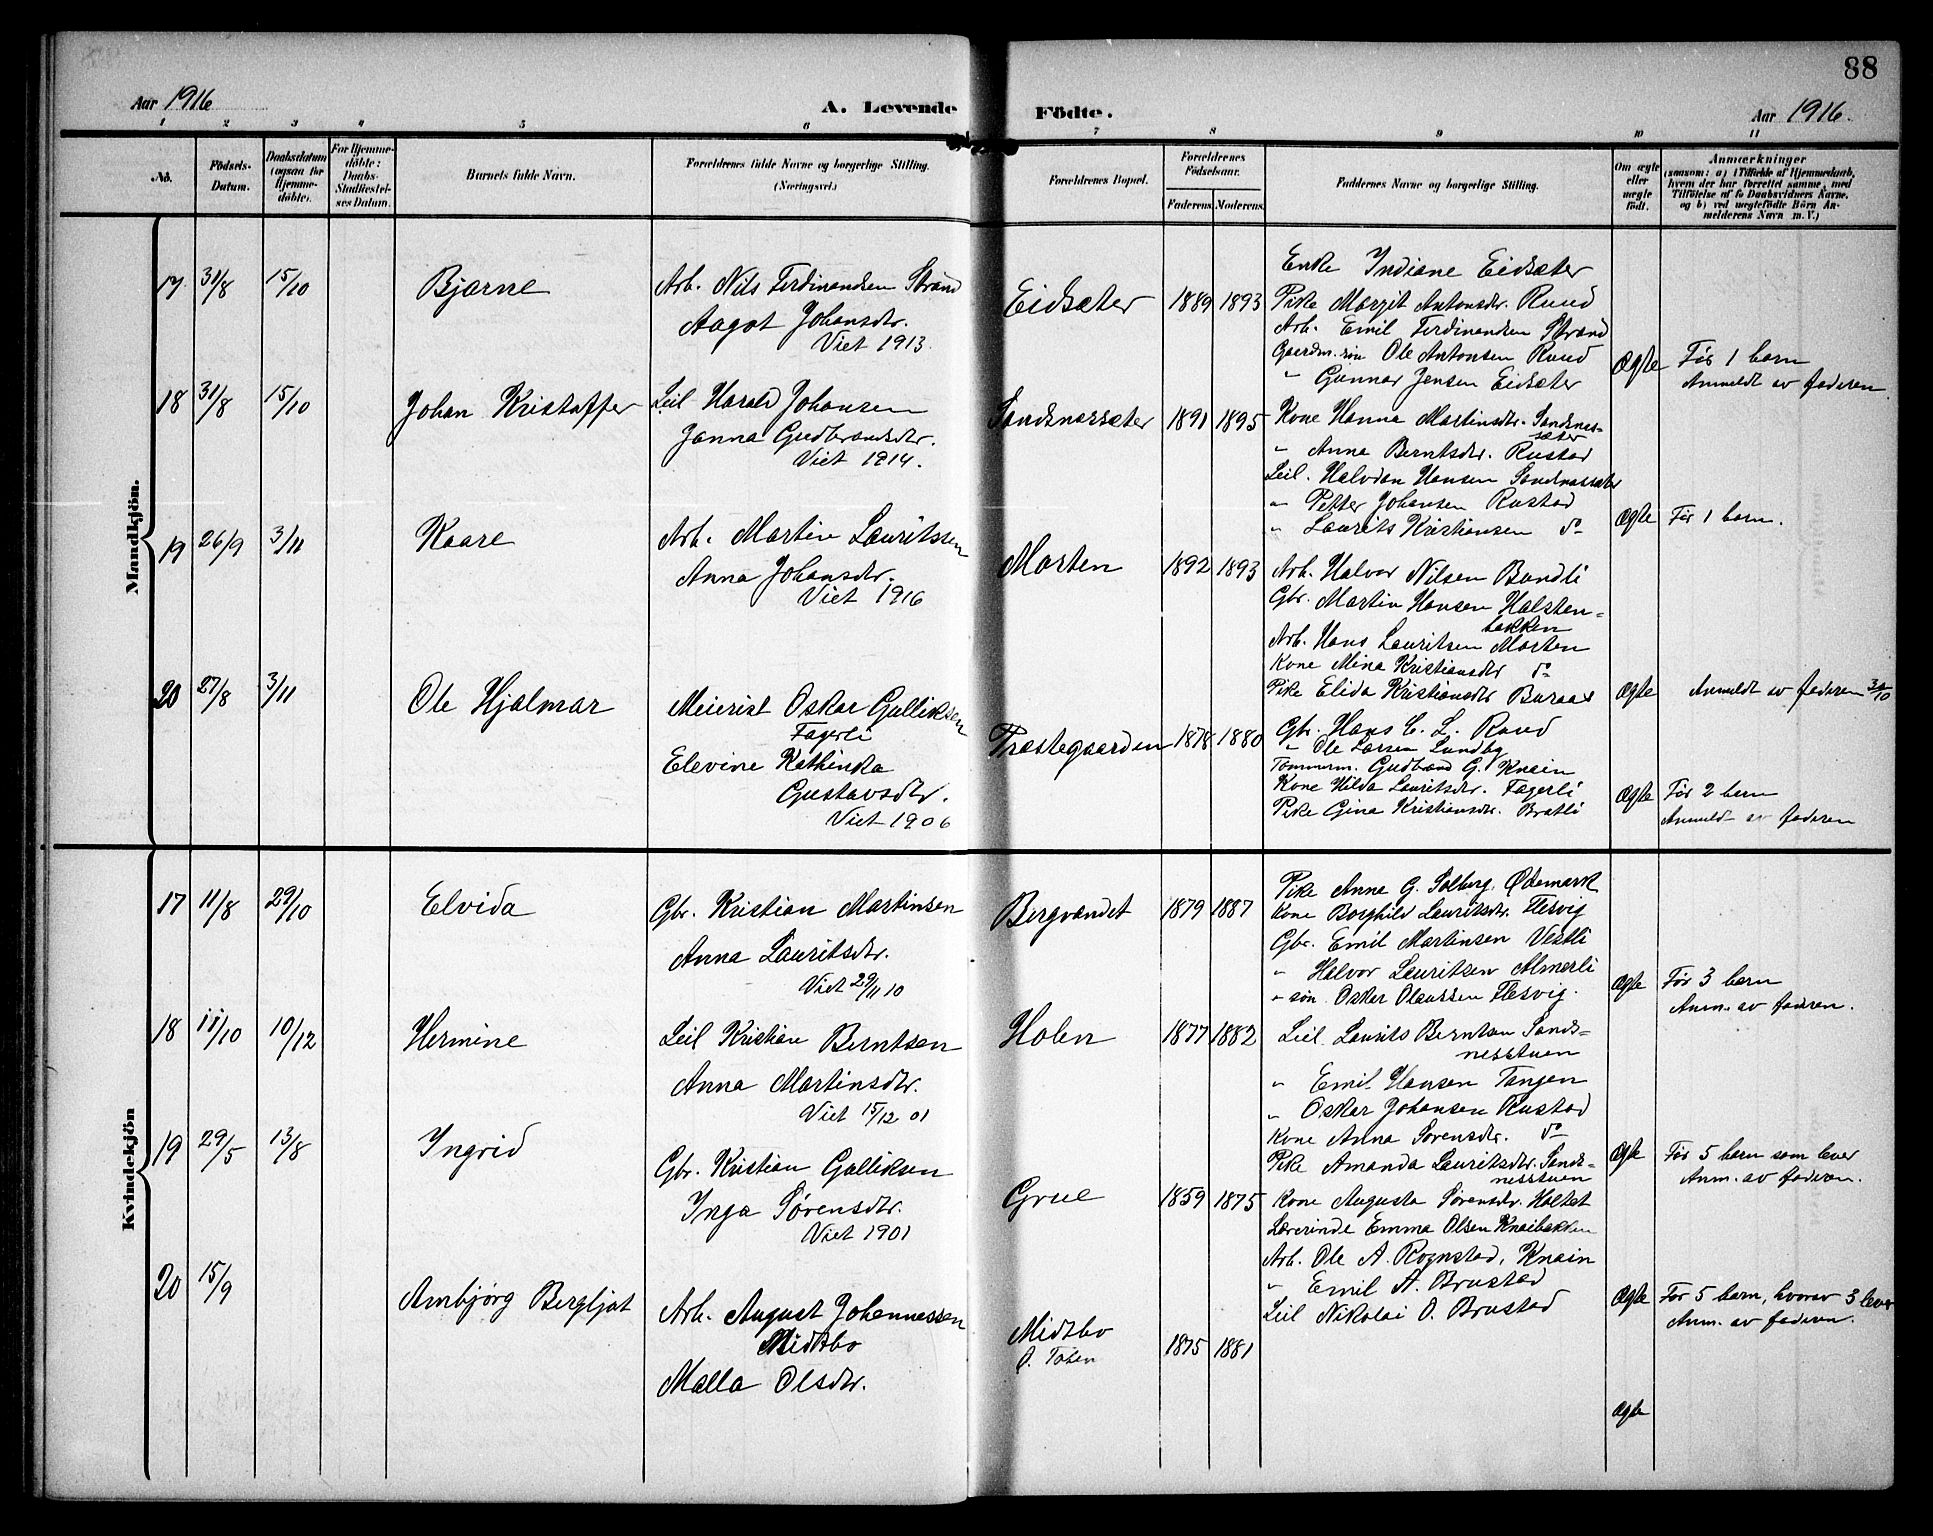 88
Aar 1916
A. Levende
Födte.
Aar 1916.
1
2
3
4
5
6
7
8
9
10
11
No.
Födsels-
Datum.
Daabsdatum
(ogsaa for
Hjemme-
döbte).
For Hjemme-
döbte:
Daabs-
Stadfæstel-
ses Datum.
Barnets fulde Navn.
Forældrenes fulde Navne og borgerlige Stilling.
(Næringsvei.)
Forældrenes Bopæl.
Forældrenes
Födselsaar.
Faderens.
Moderens.
Faddernes Navne og borgerlige Stilling.
Om ægte
eller
uægte
født.
Anmærkninger
(saasom: a) i Tilfælde af Hjemmedaab,
hvem der har forrettet samme, med
Tilföielse af to Daabsvidners Navne.
og b) ved uægtefödte Börn An-
melderens Navn m. V.)
Mandkjön.
17 31/8 15/10
Bjarne
Arb. Nils Ferdinandsen Strand
Aagot Johansdtr.
Viet 1913.
Eidsæter
1889 1893
Enke Indiane Eidsæter
Pike Margit Antonsdtr. Ruud
Arb. Emil Ferdinandsen Strand
Gaardm. søn Ole Antonsen Ruud
" Gunnar Jensen Eidsæter
Ægte
Før 1 barn
Anmeldt av faderen
18 31/8 15/10
Johan Kristaffer
Leil Harald Johansen
Janna Gudbrandsdtr.
Viet 1914.
Sandsnæssæter
1891 1895
Kone Hanna Martinsdtr. Sandnes-
sæter
" Anna Berntsdtr. Rustad
Leil. Halvdan Hansen Sandnæssæter
" Petter Johansen Rustad
" Laurits Kristiansen do
Ægte
Før 1 barn.
19 26/9 3/11
Kaare
Arb. Martin Lauritssen
Anna Johansdtr.
Viet 1916
Marten
1892 1893
Arb. Halvor Nilsen Bundli
Gbr. Martin Hansen Halsten-
bakken
Arb. Hans Lauritsen Marten
Kone Mina Kristiansdtr do
Pike Elida Kristiansdtr Buraas
Ægte
Anmeldt av faderen 30/10
20 27/8 3/11
Ole Hjalmar
Meierist Oskar Gulliksen
Fagerli
Elevine Kathinka
Gustavsdtr.
Viet 1906
Præstegaarden
1878 1880
Gbr. Hans C. L. Ruud
" Ole Larsen Lundby
Tømmerm. Gudbrand G. Knain
Kone Hilda Lauritsdtr. Fagerli
Pike Gina Kristiansdtr. Bratli
Ægte
Før 2 barn
Anmeldt av faderen
Kvindekjön
17 11/8 29/10
Elvida
Gbr. Kristian Martinsen
Anna Lauritsdtr.
Viet 29/11 10
Bergvandet
1879 1887
Pike Anna G. Solberg. Ødemark
Kone Borghild Lauritsdtr. Flesvig
Gbr. Emil Martinsen Vestli
" Halvor Lauritsen Almerli
" søn Oskar Olaussen Flesvig.
Ægte
Før 3 barn
Anm. av faderen.
18 11/10 10/12
Hermine
Leil Kristian Berntsen
Anna Martinsdtr.
Viet 15/12 01
Holen
1877 1882
Leil. Laurits Berntsen Sands-
nesstuen
" Emil Hansen Tangen
" Oskar Johansen Rustad
Kone Anna Sørensdtr. do
Pike Amanda Lauritsdtr. Sands-
nesstuen
Ægte
Før 5 barn som lever
Anm. av faderen.
19 29/5 13/8
Ingrid
Gbr. Kristian Gulliksen
Inga Sørensdtr.
Viet 1901
Grue
1859 1875
Kone Augusta Sørensdtr. Holtet
Lærerinde Emma Olsen Knaibakken
Arb. Ole A. Rognstad, Knain
" Emil A. Brustad
Leil Nikolai O. Brustad
Ægte
Før 5 barn, hvorav 3 lever
Anm. av faderen.
20 15/9
Arnbjørg Bergljot
Arb. August Johannessen
Midtbo
Malla Olsdtr.
Midtbo
Ø. Toten
1875 1881
Ægte